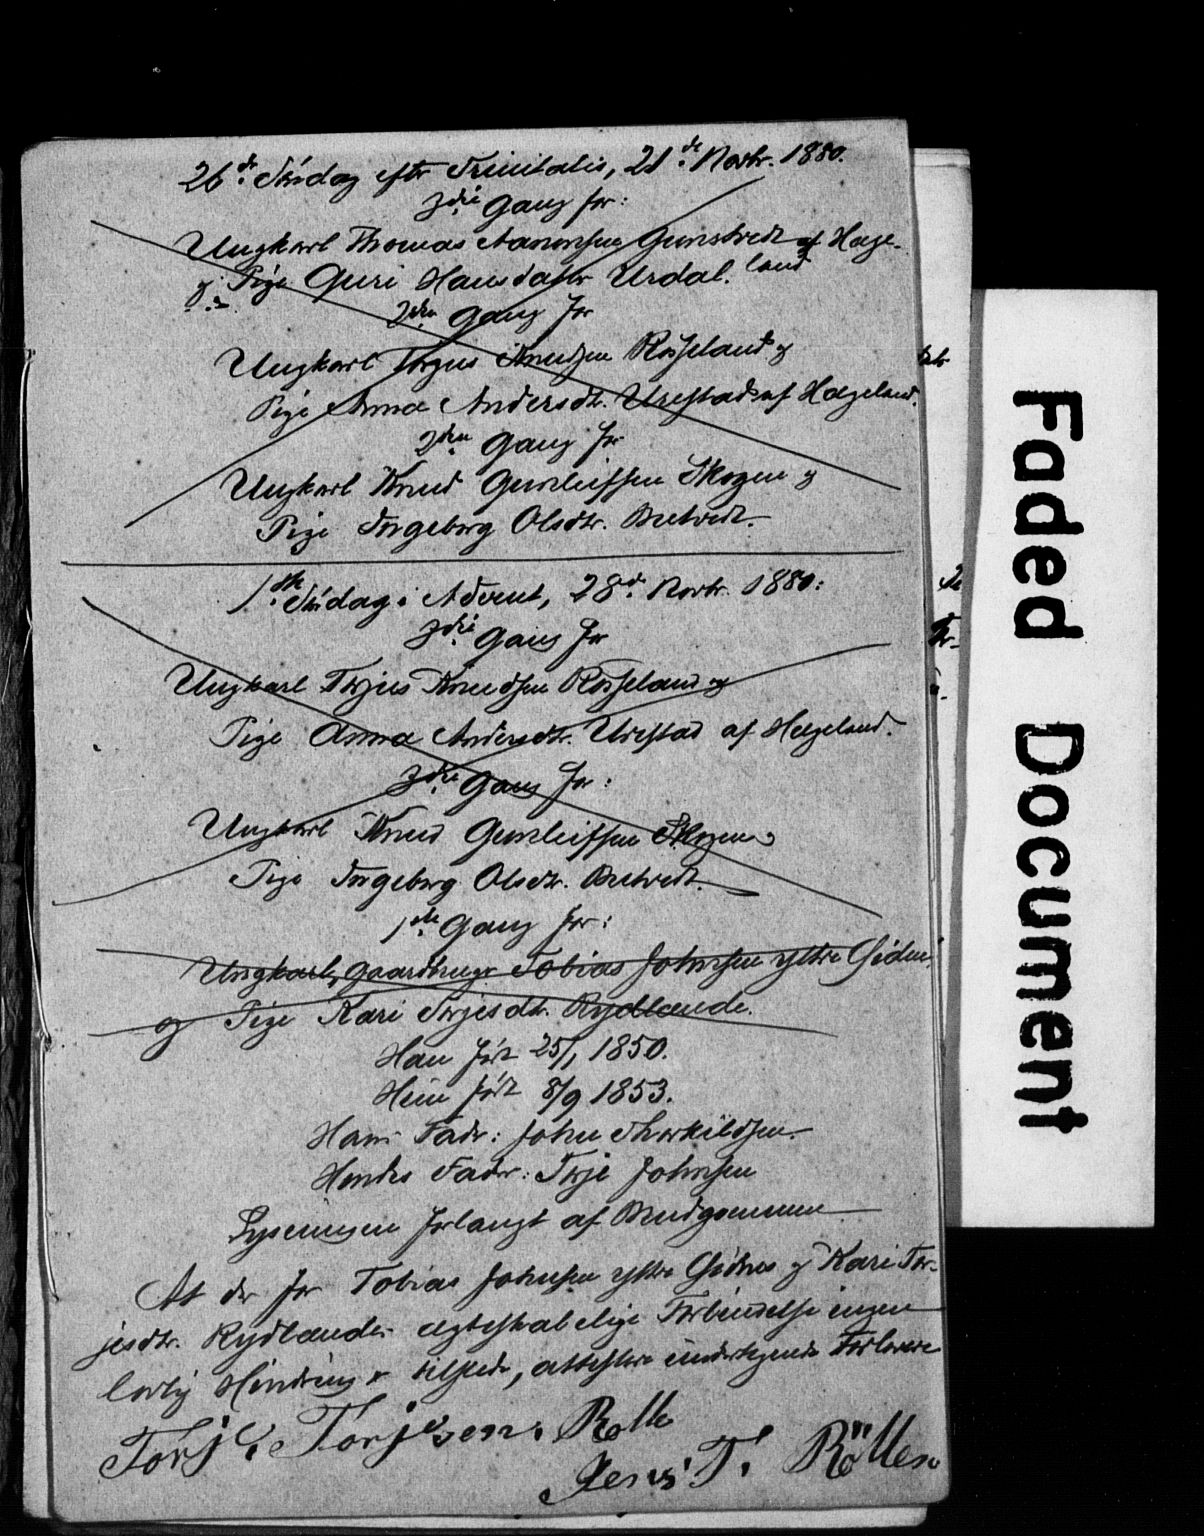 26de Søndag eftr Trinitatis, 21de Novbr. 1880.
3die Gang for:
Ungkarl Thomas Aanensen Gunstvedt af Hæge-
land
og Pige Guri Hansdatter Urdal.
2den Gang for
Ungkarl Torjus Knudsen Røsseland og
Pige Anna Andersdtr. Urestad af Hægeland.
2den Gang for
Ungkarl Knud Gunleifsen Skogen og
Pige Ingeborg Olsdtr. Bretvedt.
1ste Søndag i Advent, 28de Novbr. 1880:
3die Gang for
Ungkarl Terjus Knudsen Røsseland og
Pige Anna Andersdtr. Urestad af Hægeland.
3die Gang for:
Ungkarl Knud Gunleifsen Skogen og
Pige Ingeborg Olsdtr. Bretvedt.
1ste Gang for:
Ungkarl, Gaardbruger Tobias Johnsen yttre
og Pige Kari Terjesdtr. Rydlande.
Han født 25/1 1850.
Hun født 8/9 1853.
Hans Fader: John Thorkildsen.
Hendes Fader: Terje Johnsen
Lysningen forlangt af Brudgommen
At der for Tobias Johnsen yttre og Kari Ter-
jesdtr. Rydlandes ægteskabelige Forbindelse ingen
lovlig Hindring er tilstede, attestere undertegnede Forlovere
Torje. Torjesen. Rolle
Jens T. Röllen
Faded Document